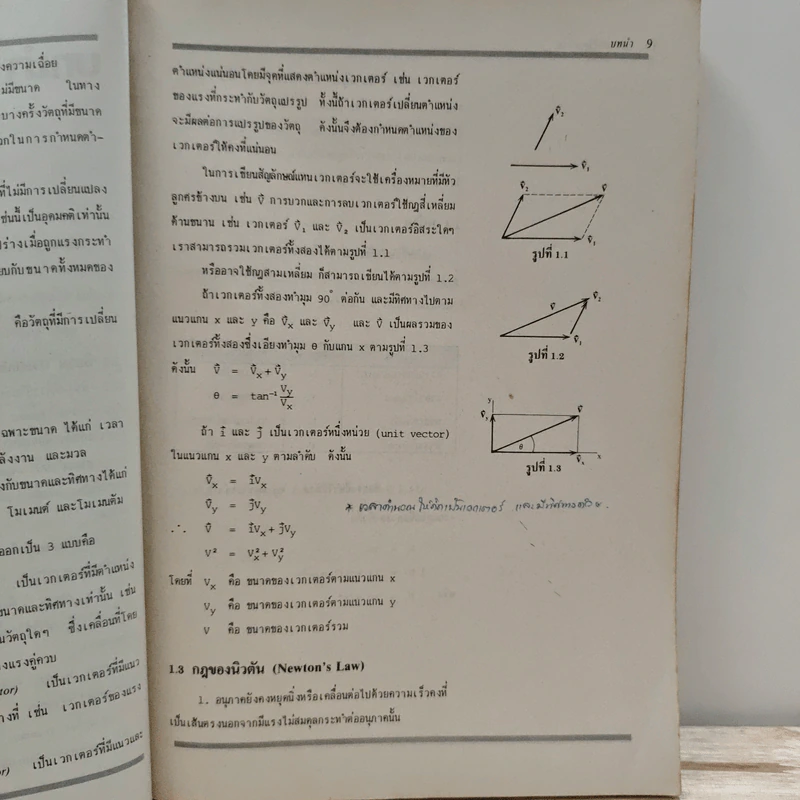 งความเฉื่อย
ม่มีขนาด ในทาง
บางครั้งวัตถุที่มีขนาด
วกในการกำหนดตำ-
ที่ไม่มีการเปลี่ยนแปลง
ช่นนี้เป็นอุดมคติเท่านั้น
ปร่างเมื่อถูกแรงกระทำ
ยบกับขนาดทั้งหมดของ
คือวัตถุที่มีการเปลี่ยน
ฉพาะขนาด ได้แก่ เวลา
ลังงาน และมวล
งกับขนาดและทิศทางได้แก่
โมเมนต์ และโมเมนตัม
ออกเป็น 3 แบบคือ
เป็นเวกเตอร์ที่มีตำแหน่ง
ขนาดและทิศทางเท่านั้น เช่น
นวัตถุใดๆ ซึ่งเคลื่อนที่โดย
งแรงคู่ควบ
tor) เป็นเวกเตอร์ที่มีแนว
างที่ เช่น เวกเตอร์ของแรง
or) เป็นเวกเตอร์ที่มีแนวและ
บทนำ 9
ตำแหน่งแน่นอนโดยมีจุดที่แสดงตำแหน่งเวกเตอร์ เช่น เวกเตอร์
ของแรงที่กระทำกับวัตถุแปรรูป ทั้งนี้ถ้าเวกเตอร์เปลี่ยนตำแหน่ง
จะมีผลต่อการแปรรูปของวัตถุ ดังนั้นจึงต้องกำหนดตำแหน่งของ
เวกเตอร์ให้คงที่แน่นอน
ในการเขียนสัญลักษณ์แทนเวกเตอร์จะใช้เครื่องหมายที่มีหัว
ลูกศรข้างบน เช่น V̂ การบวกและการลบเวกเตอร์ใช้กฎสี่เหลี่ยม
ด้านขนาน เช่น เวกเตอร์ V̂₁ และ V̂₂ เป็นเวกเตอร์อิสระใดๆ
เราสามารถรวมเวกเตอร์ทั้งสองได้ตามรูปที่ 1.1
หรืออาจใช้กฎสามเหลี่ยม ก็สามารถเขียนได้ตามรูปที่ 1.2
ถ้าเวกเตอร์ทั้งสองทำมุม 90° ต่อกัน และมีทิศทางไปตาม
แนวแกน x และ y คือ V̂x และ V̂y และ V̂ เป็นผลรวมของ
เวกเตอร์ทั้งสองซึ่งเอียงทำมุม θ กับแกน x ตามรูปที่ 1.3
ดังนั้น V̂ = V̂x + V̂y
θ = tan⁻¹ Vy/Vx
ถ้า î และ ĵ เป็นเวกเตอร์หนึ่งหน่วย (unit vector)
ในแนวแกน x และ y ตามลำดับ ดังนั้น
V̂x = îVx
V̂y = ĵVy
∴ V̂ = îVx + ĵVy
V² = Vx² + Vy²
โดยที่ Vx คือ ขนาดของเวกเตอร์ตามแนวแกน x
Vy คือ ขนาดของเวกเตอร์ตามแนวแกน y
V คือ ขนาดของเวกเตอร์รวม
1.3 กฎของนิวตัน (Newton's Law)
1. อนุภาคยังคงหยุดนิ่งหรือเคลื่อนต่อไปด้วยความเร็วคงที่
เป็นเส้นตรงนอกจากมีแรงไม่สมดุลกระทำต่ออนุภาคนั้น
V̂₂
V̂₁
V̂₂ V̂
V̂₁
รูปที่ 1.1
V̂ V̂₂
รูปที่ 1.2
y
V̂
θ
V̂x x
รูปที่ 1.3